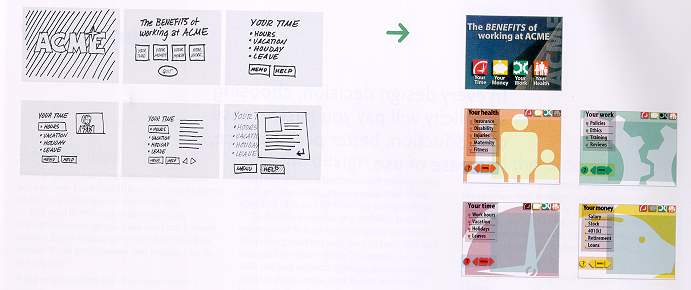 ACME
The BENEFITS of
working at ACME
YOUR TIME
YOUR MONEY
YOUR WORK
YOUR HEALTH
QUIT
YOUR TIME
• HOURS
• VACATION
• HOLIDAY
• LEAVE
MENU HELP
YOUR TIME
• HOURS
• VACATION
• HOLIDAY
• LEAVE
MENU HELP
YOUR TIME
• HOURS
• VACATION
• HOLIDAY
• LEAVE
MENU HELP
YOUR T
• HOURS
• VACATI
• HOLIDAY
• LEAVE
MENU HELP
The BENEFITS of
working at ACME
ACME
Your Time
Your Money
Your Work
Your Health
Your health
Insurance
Disability
Injuries
Maternity
Fitness
Your work
Policies
Ethics
Training
Reviews
Your time
Work hours
Vacation
Holidays
Leaves
Your money
Salary
Stock
401(k)
Retirement
Loans